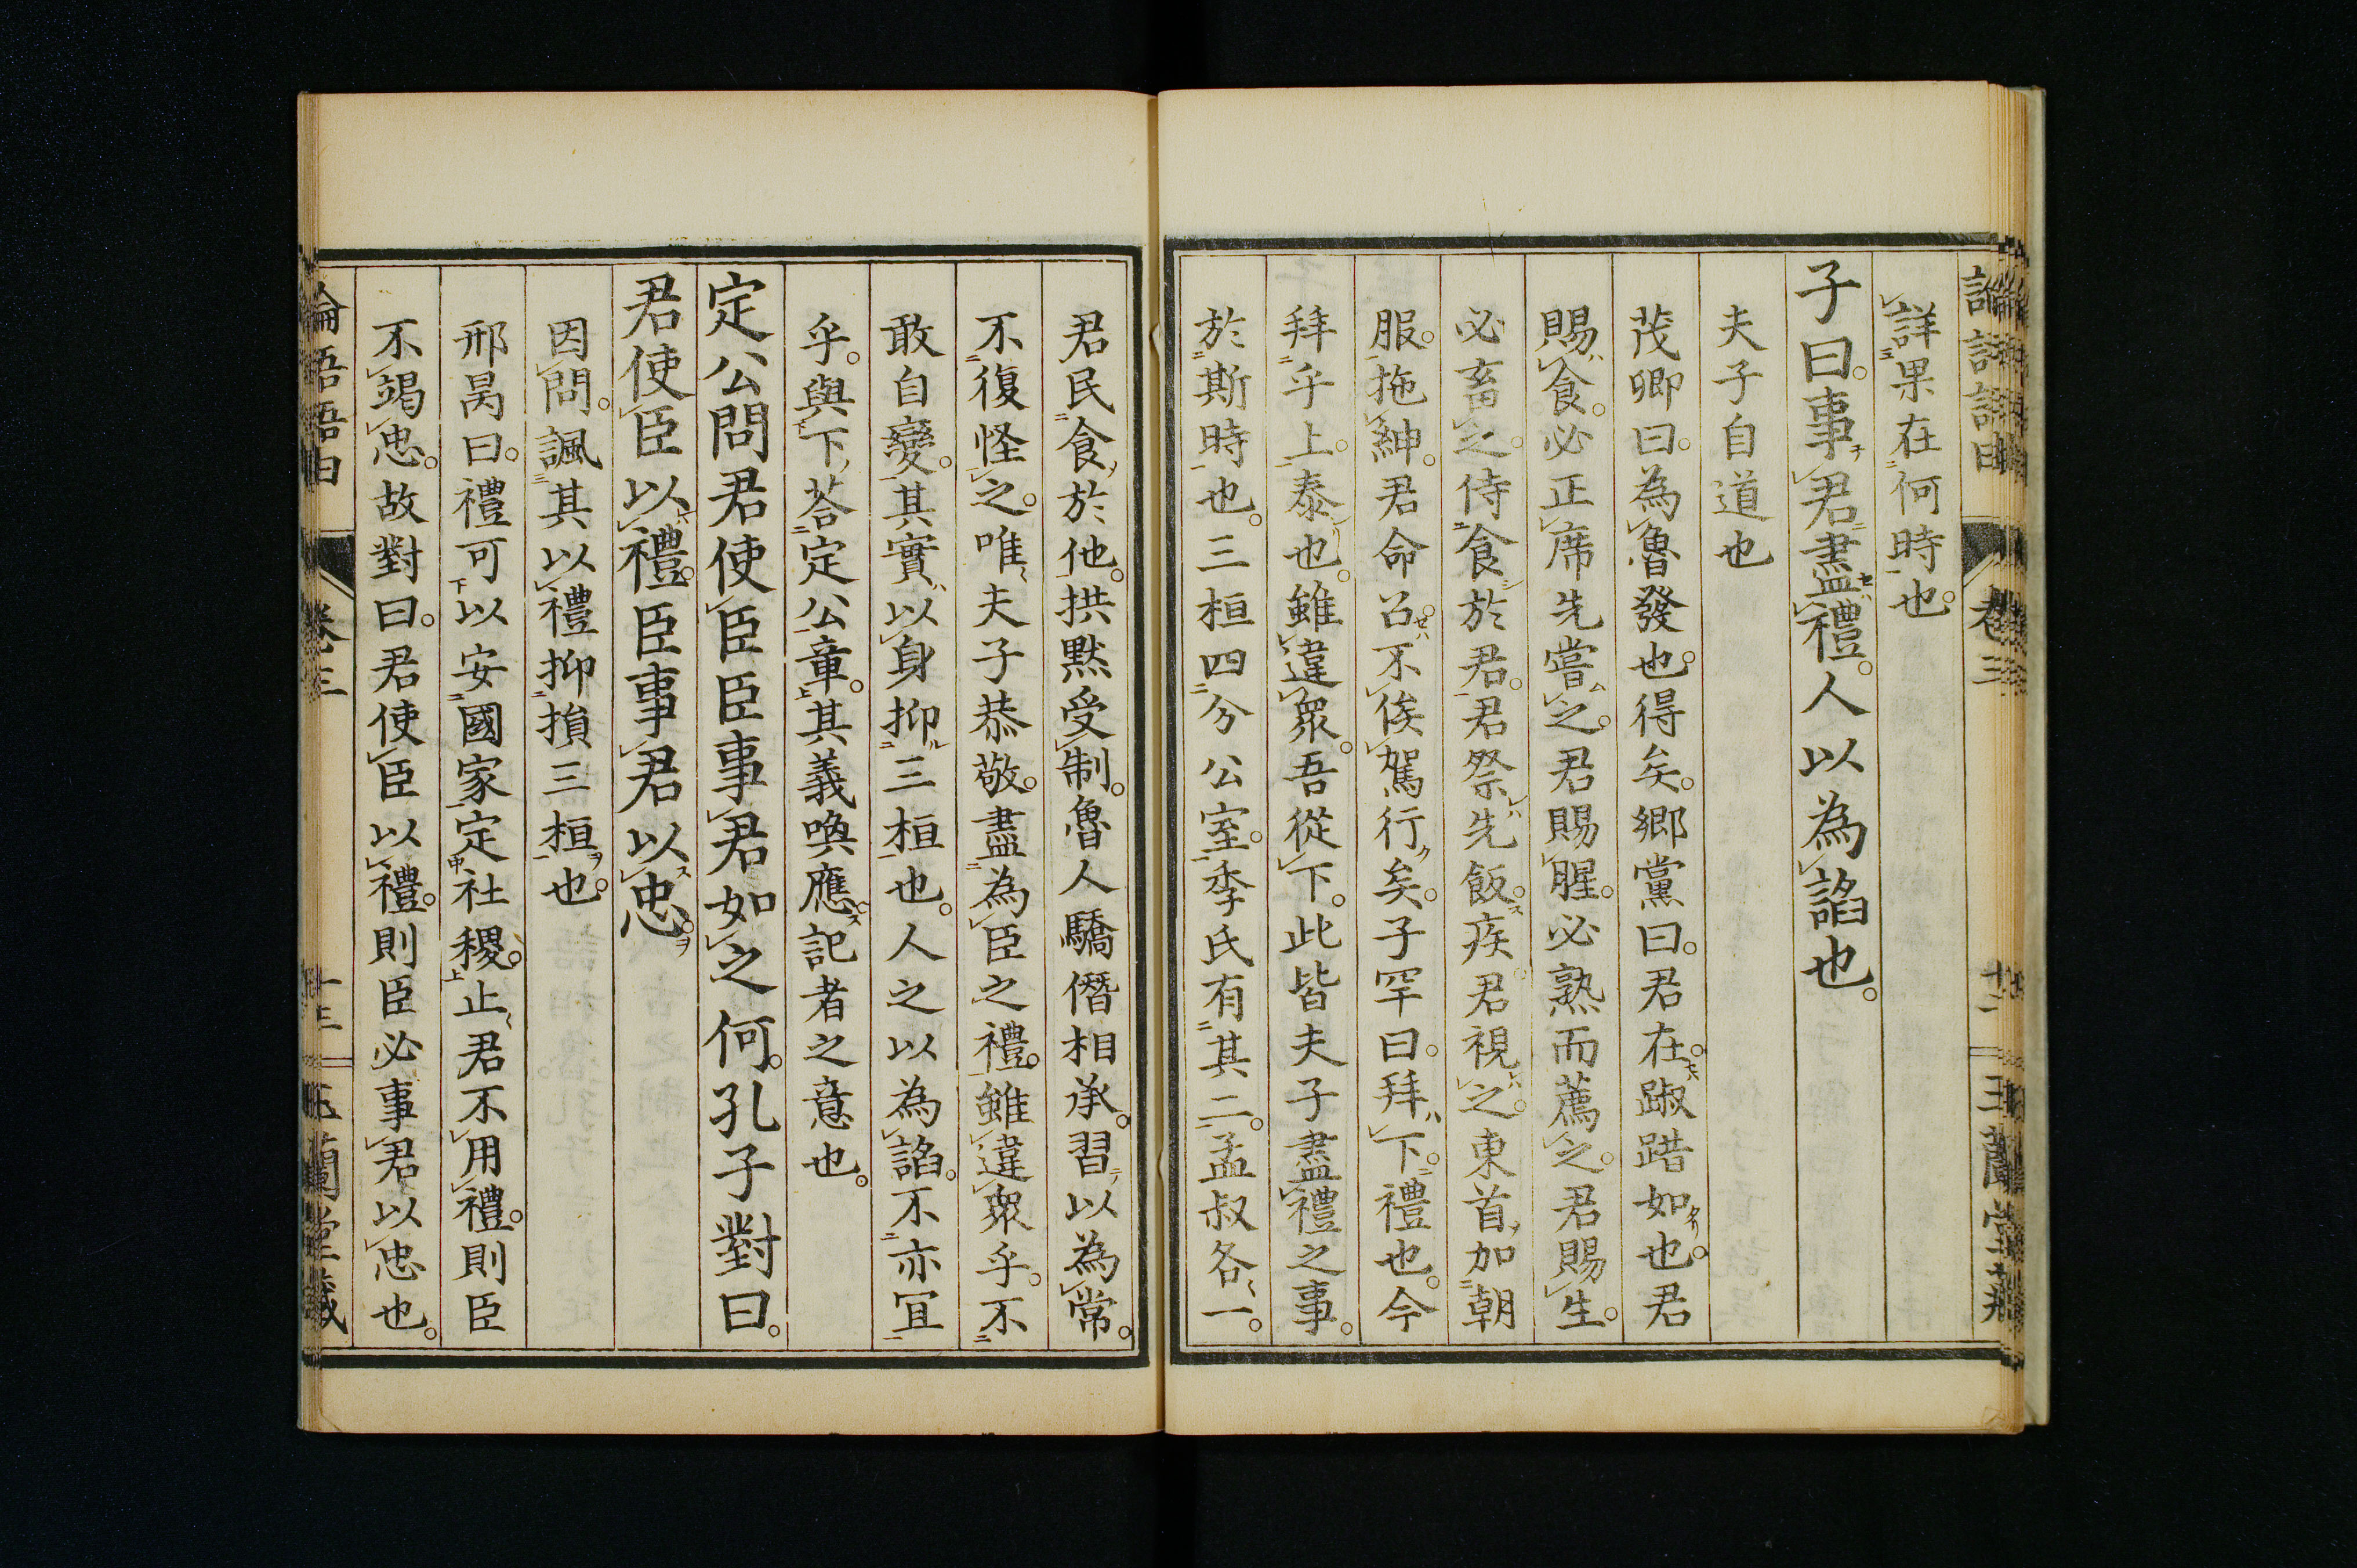 詳果在何時也。
子曰。事君盡禮。人以為諂也。
夫子自道也
茂卿曰。為魯發也。得矣。鄉黨曰。君在。踧踖如也。君
賜食。必正席先嘗之。君賜腥。必熟而薦之。君賜生。
必畜之。侍食於君。君祭先飯。疾君視之。東首加朝
服。拖紳。君命召。不俟駕行矣。子罕曰。拜下。禮也。今
拜乎上。泰也。雖違眾。吾從下。此皆夫子盡禮之事。
於斯時也。三桓四分公室。季氏有其二。孟叔各一。
君民食於他。拱默受制。魯人驕僭相承。習以為常。
不復怪之。唯夫子恭敬。盡為臣之禮。雖違眾乎。不
敢自變。其實以身抑三桓也。人之以為諂。不亦宜
乎。與下荅定公章。其義喚應。記者之意也。
定公問君使臣臣事君如之何。孔子對曰。
君使臣以禮。臣事君以忠。
因問。諷其以禮抑損三桓也。
邢昺曰。禮可以安國家定社稷。止君不用禮。則臣
不竭忠。故對曰。君使臣以禮。則臣必事君以忠也。
論語語由 卷三 十三 玉蘭堂藏